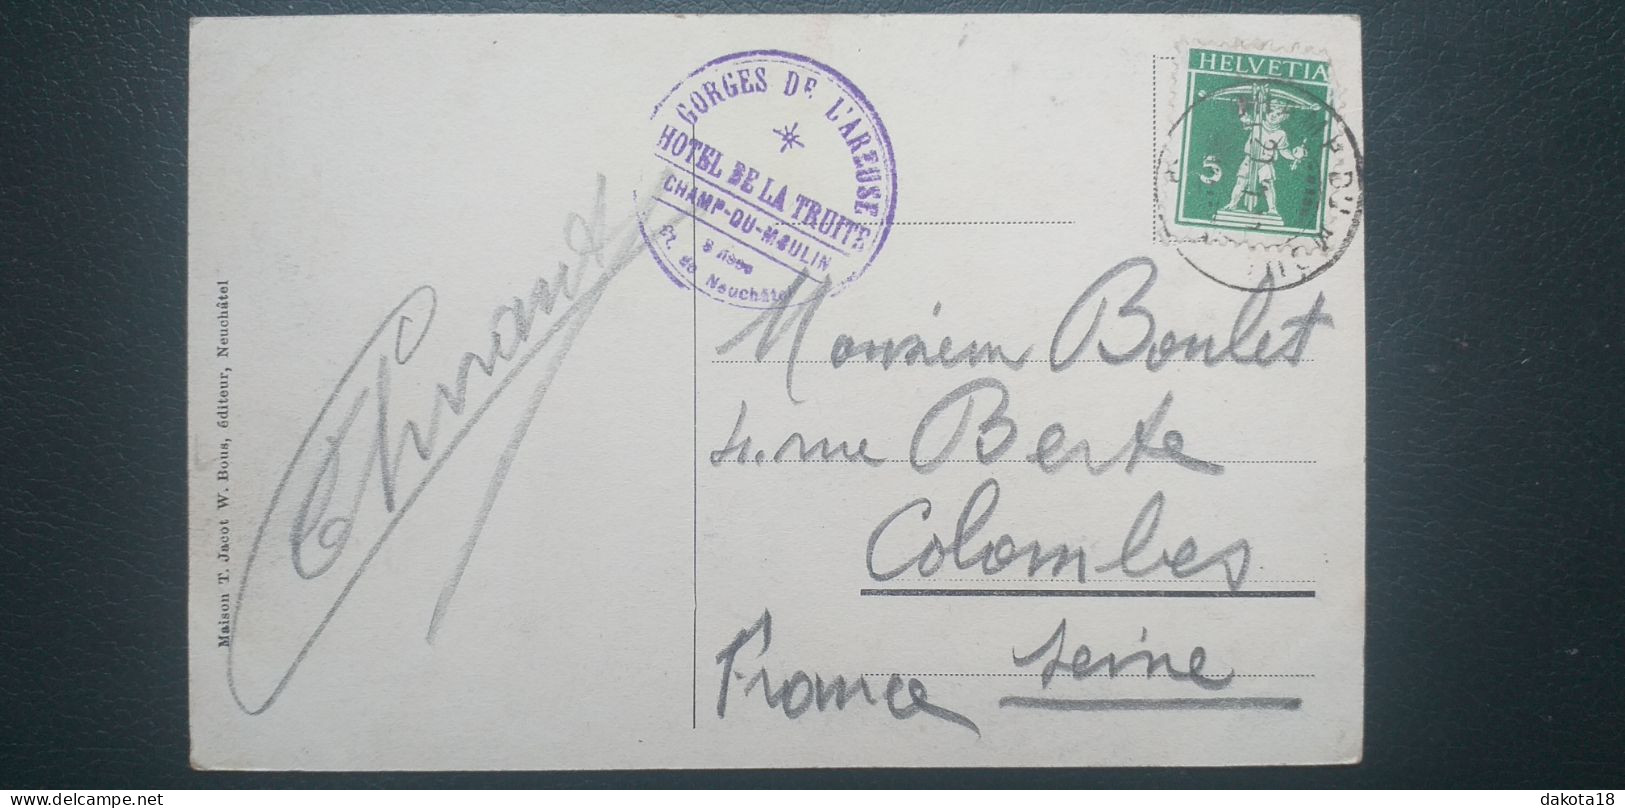 GORGES DE L'AREUSE
HOTEL DE LA TRUITE
CHAMP-DU-MOULIN
Ct. de Neuchâtel
HELVETIA
5
Monsieur Boulet
4. rue Berte
Colombes
Seine
France
Maison T. Jacot W. Bous, éditeur, Neuchâtel
dakota18